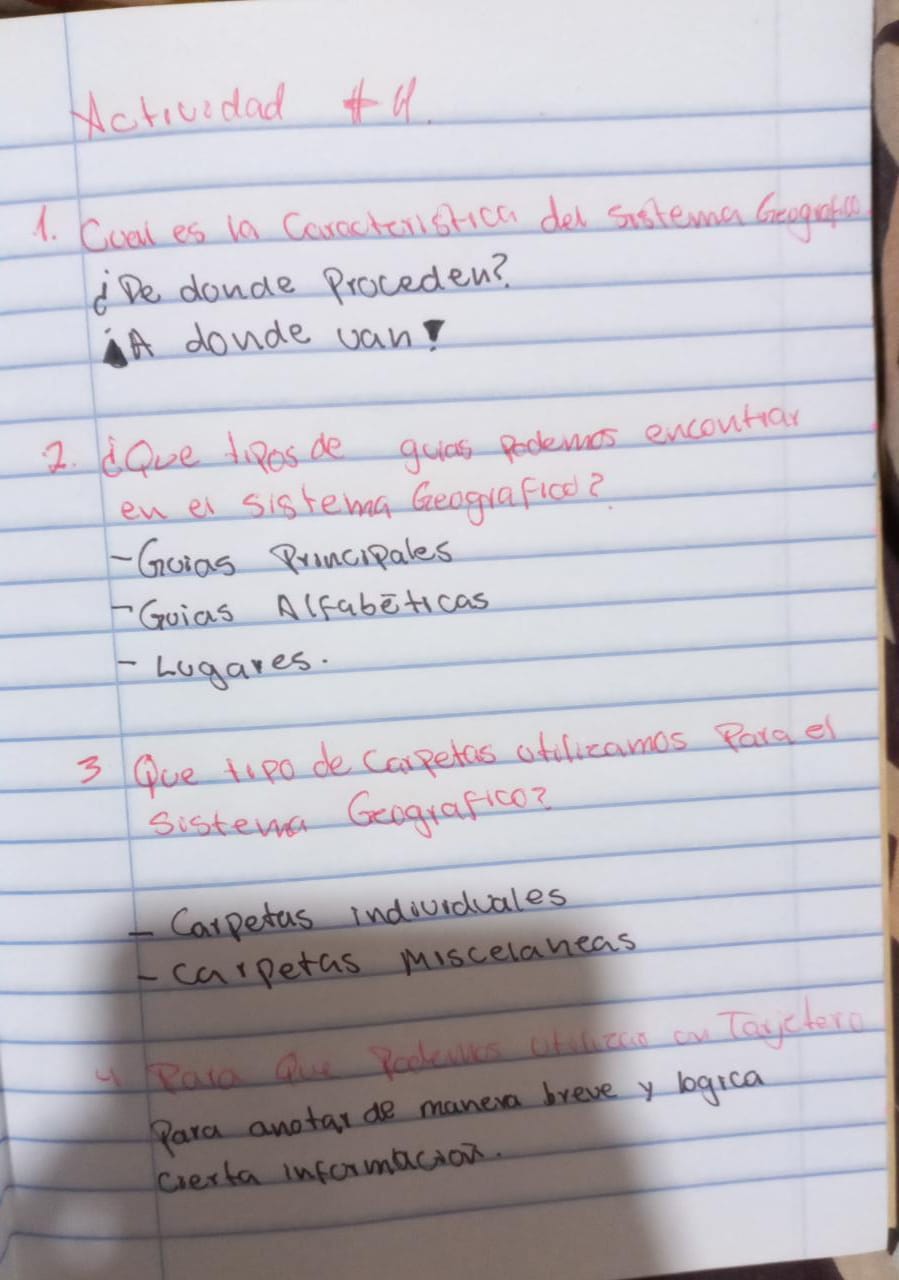 Actividad #4.
1. Cual es la Caracteristica del sistema Geografico
¿De donde Proceden?
¡A donde van!
2. ¿Que tipos de guias podemos encontrar
en el sistema Geografico?
- Guias Principales
- Guias Alfabéticas
- Lugares.
3 Que tipo de carpetas utilizamos Para el
Sistema Geografico?
- Carpetas individuales
- Carpetas Miscelaneas
4 Para Que Podemos utilizar un Tarjetero
Para anotar de manera breve y logica
cierta informacion.